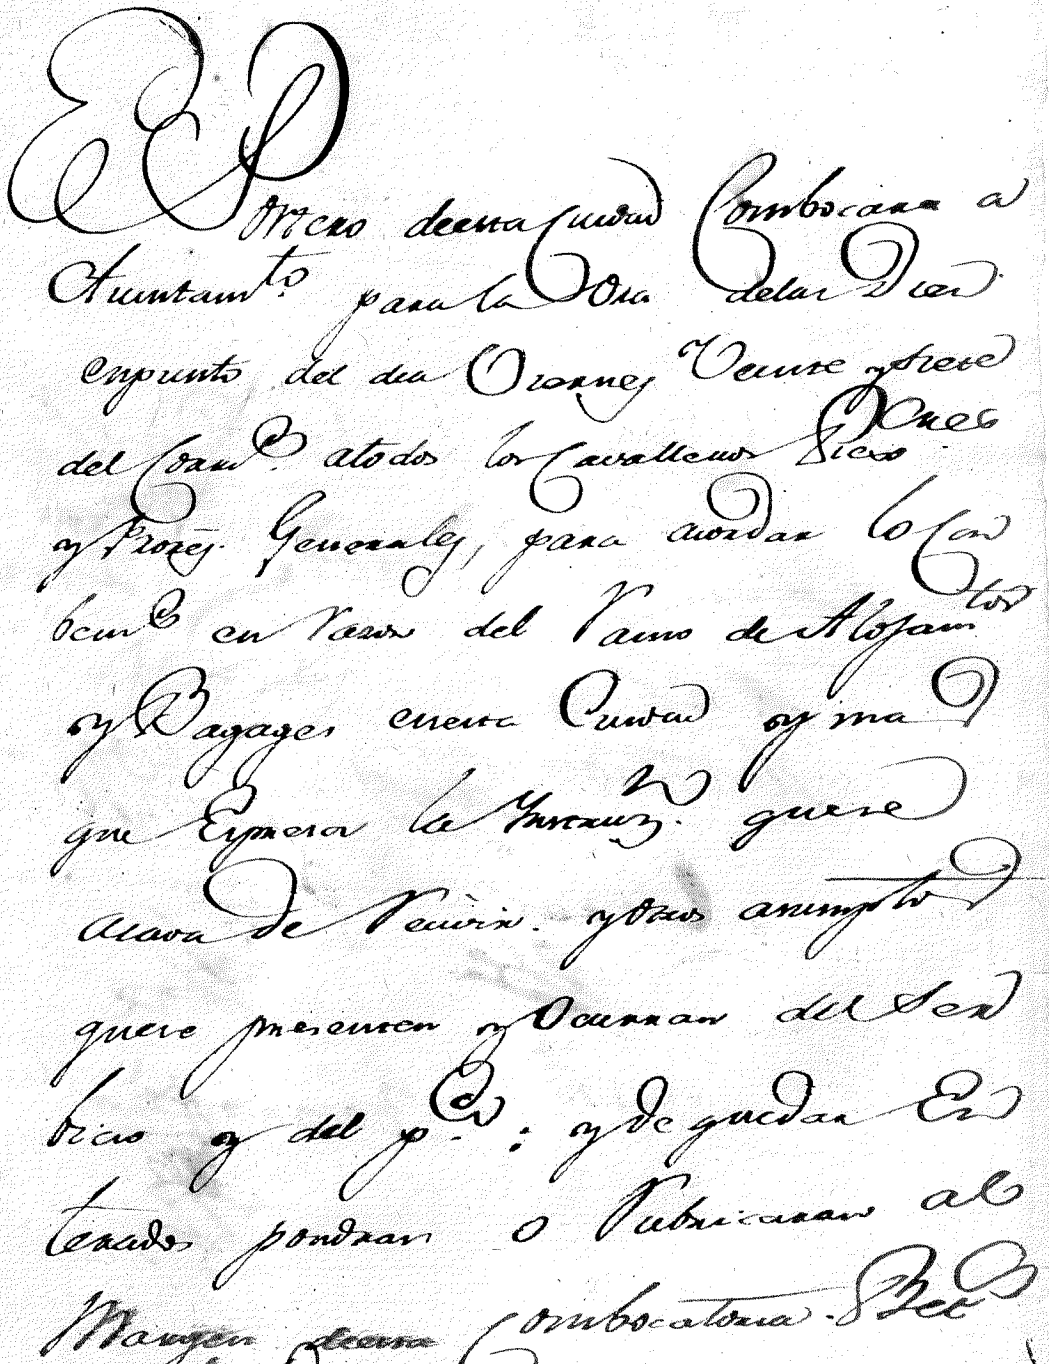 El Portero deesta Ciudad Combocara a
Aiuntam.to para la Ora delas Diez
enpunto del dia Viernes Veinte ysiete
del Corr.te atodos los Cavalleros Rexidores
y Prores. Generales, para acordar lo Con
ben.te en razon del Ramo de Alojam.tos
y Bagages enesta Ciudad y mas
que Expresa la Instruz.n quese
acava de Recivir. yotros asumptos
quese presenten y Ocurran del Ser
bicio y del p.co ; y de quedar En
terados pondran o Rubricaran al
Margen deesta Combocatoria.